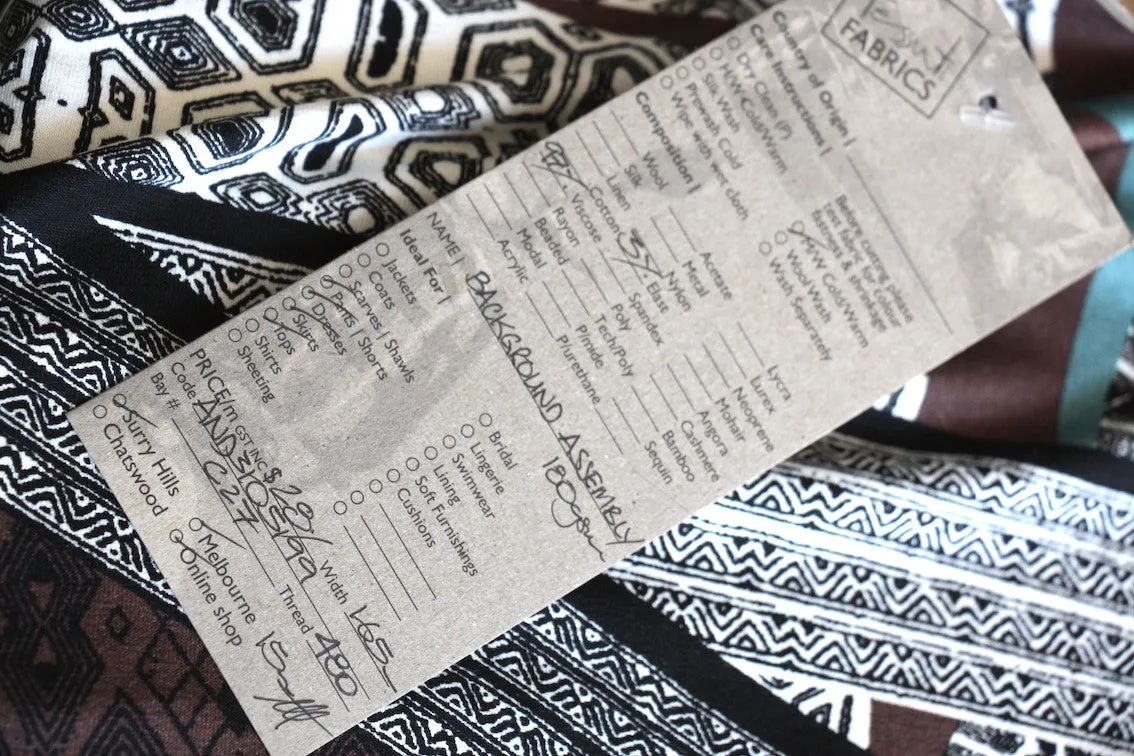 FABRICS
Country of Origin |
Care Instructions |
Dry Clean (P)
H/W Cold/Warm
Silk Wash
Prewash Cold
Wipe with wet cloth
Before cutting please
test fabric for colour
fastness & shrinkage
M/W Cold/Warm
Wool Wash
Wash Separately
Composition |
Wool
Silk
Linen
Cotton
97% Viscose
Rayon
Beaded
Modal
Acrylic
Acetate
Metal
Nylon
3% Elast
Spandex
Poly
Tech/Poly
P/hide
Plurethane
Lycra
Lurex
Neoprene
Mohair
Angora
Cashmere
Bamboo
Sequin
NAME | BACKGROUND ASSEMBLY
180gsm
Ideal For |
Jackets
Coats
Scarves / Shawls
Pants / Shorts
Dresses
Skirts
Tops
Shirts
Sheeting
Bridal
Lingerie
Swimwear
Lining
Soft Furnishings
Cushions
PRICE/m GST INC $ 20/ Width 1.65
Code
Thread 480
Bay # C27
Surry Hills
Chatswood
Melbourne
Online shop